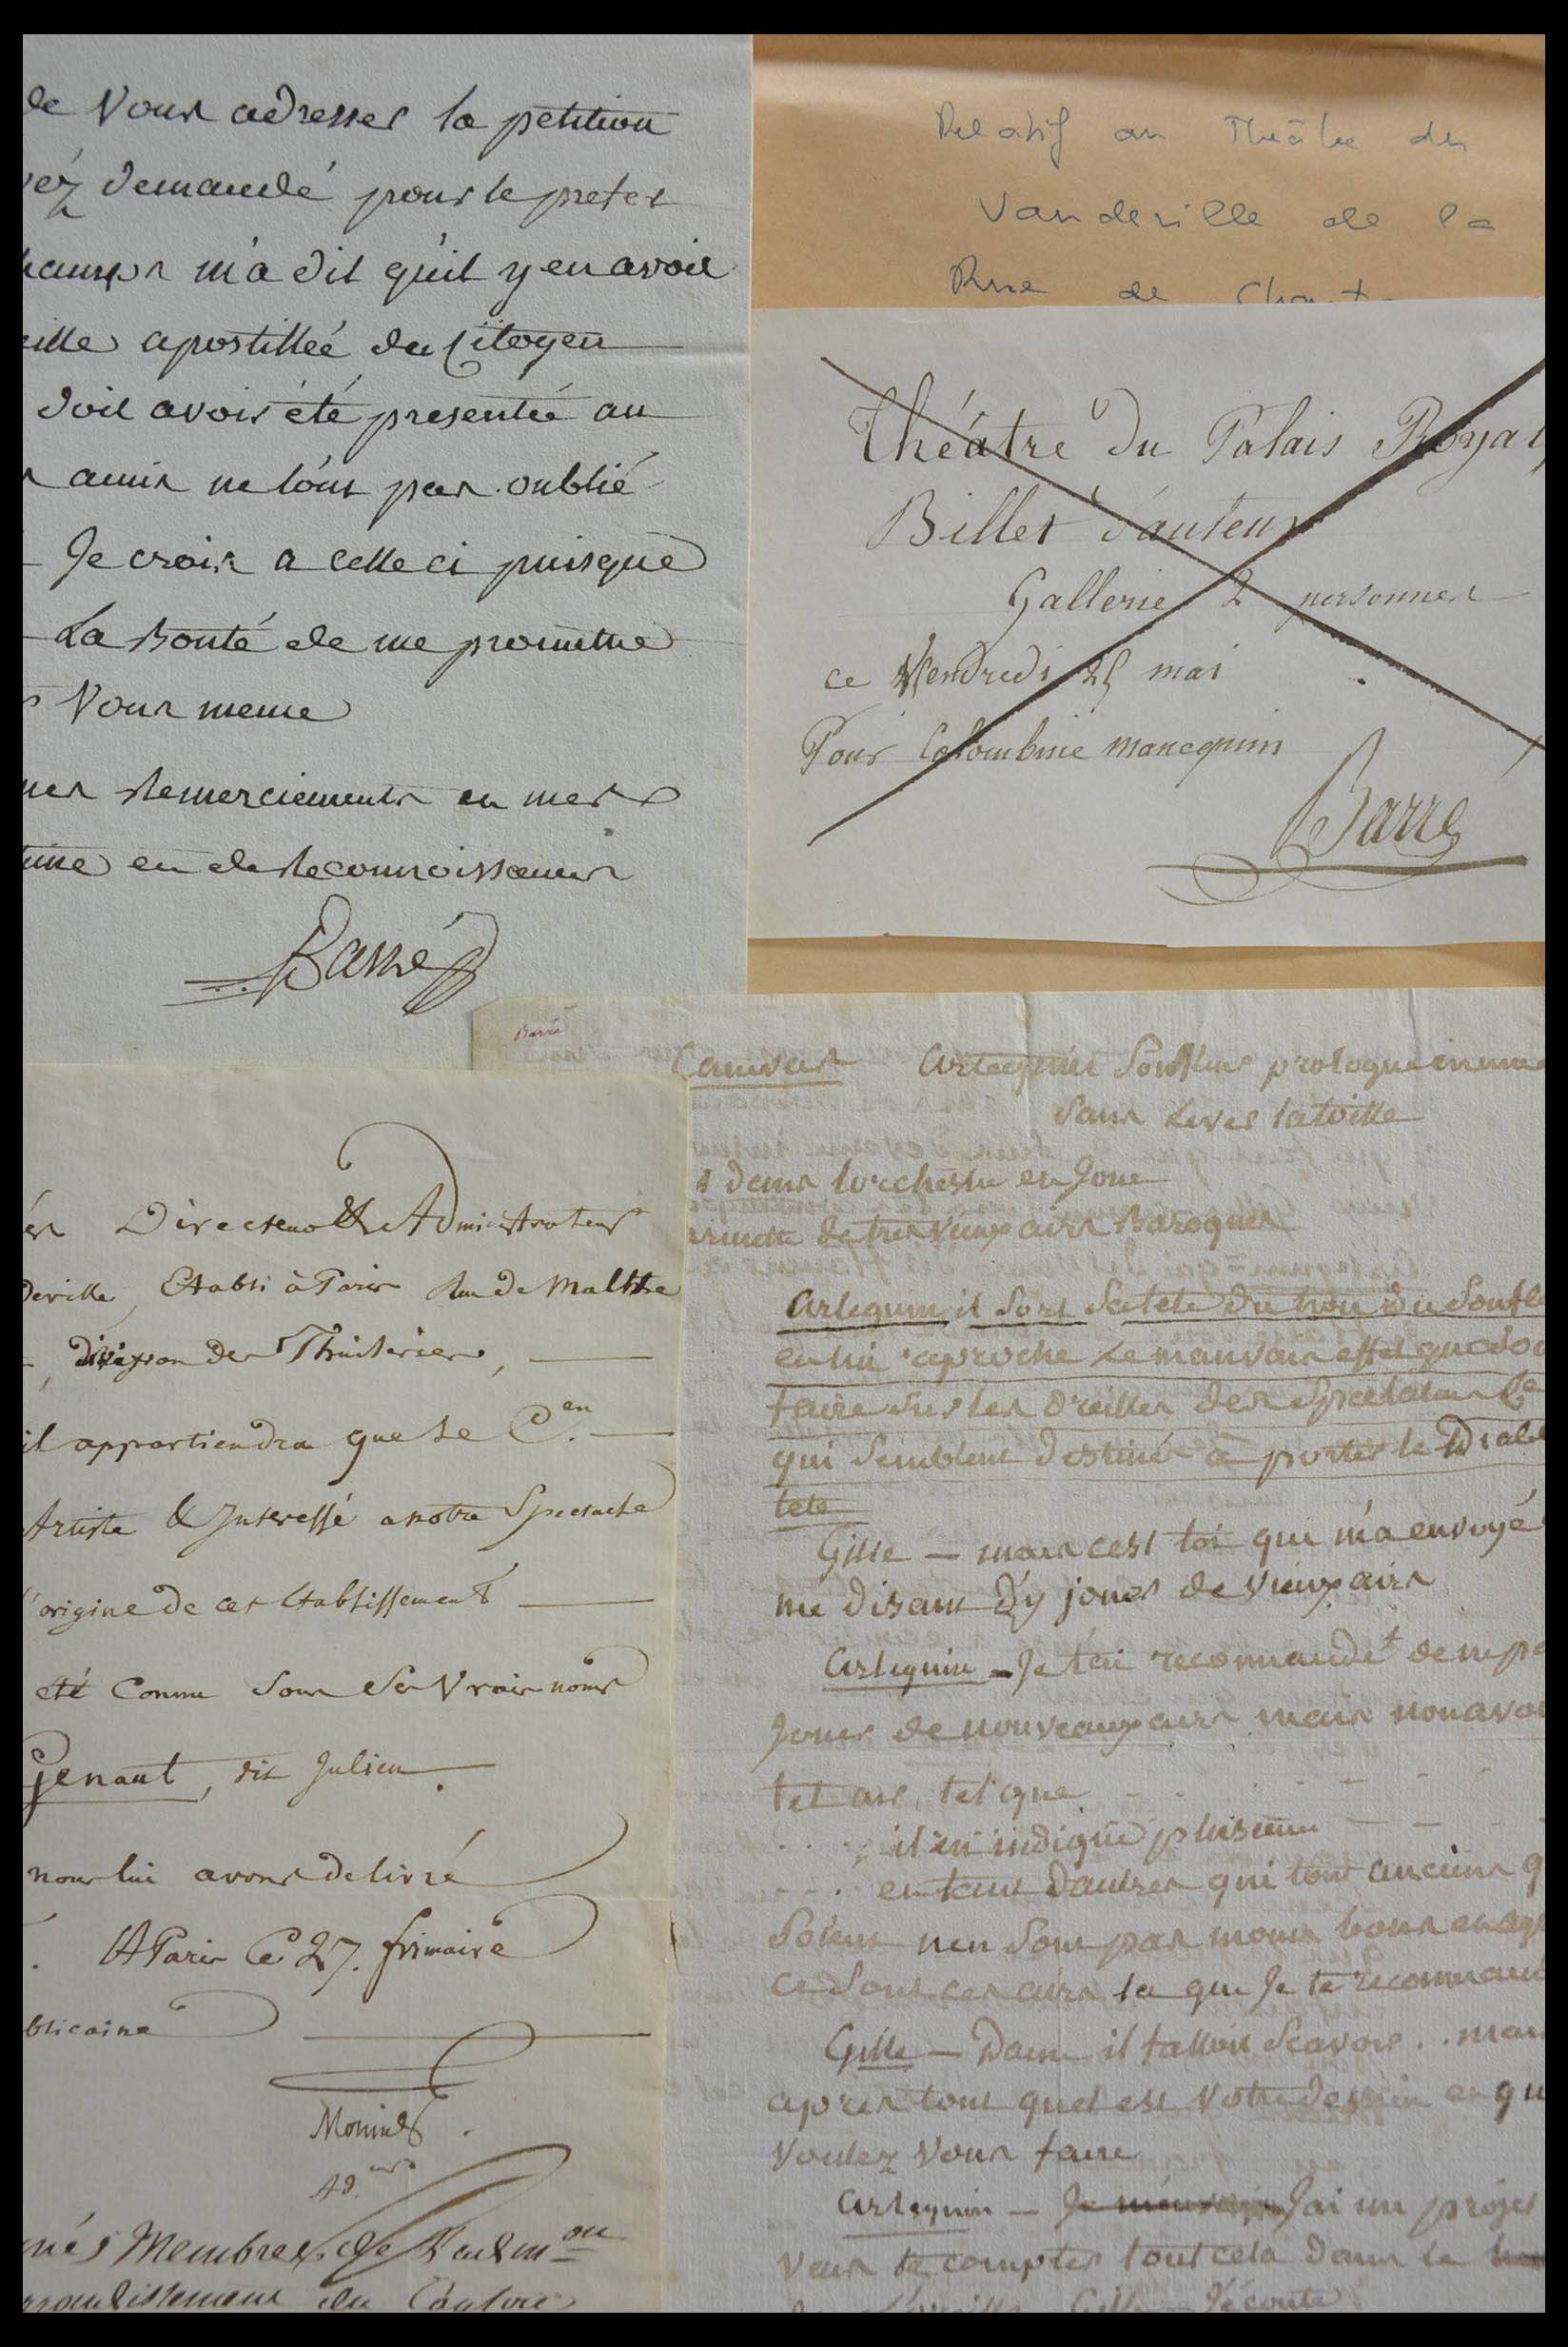 de Vous adresser la petition
véz demandé pour le preter
m'a dit qu'il y en avoit
apostilleé du Citoyen
doit avoir été presenteé au
amis ne l'ont pas oublié
Je crois a celle ci puisque
La Bonté de me promettre
Vous meme
mes Remerciements et mes
et de Reconnoissance
Barré
Relatif au Théâtre du
Vaudeville de la
Rue de Chart
Théâtre du Palais Royal
Billet d'auteur
Gallerie 2 personnes
ce Vendredi 25 mai
Pour Colombine manequin
Barré
Barré
Canevas Arlequin Souffleur prologue
Sans Lever la toille
dans l'orchestre et Joue
de tres vieux airs Baroques
Arlequin il sort sa tete du trou du Soufle
et lui reproche Le mauvais effet que
faire sur les oreilles des Spectateurs
qui semblent destinés a porter le Diable
tete
Gille — mais c'est toi qui m'a envoyé
me disant d'y jouer de vieux airs
Arlequin — Je t'ai recommandé de
Jouer de nouveaux airs mais non
tel air, tel que
il en indique plusieurs
et tant d'autres qui tout anciens q
Soient n'en Sont pas moins bons
ce Sont ces airs la que Je te recommand
Gille — Dame il falloit Scavoir . . mais
apres tout quel est Votre dessein et qu
Voulez Vous faire
Arlequin — J'ai un projet
Veux te compter tout cela dans le
Gille — J'écoute
Directeurs & Administrateurs
deville, Etabli à Paris Rue de Malthe
, Division des Thuileries,
il appartiendra que le C.en
Artiste & Interessé a notre Spectacle
l'origine de cet Etablissement
eté Connu Sous Ses Vrais noms
Genaut, dit Julien.
nous lui avons delivré
A Paris Ce 27. frimaire
blicaine
Monnier
Ad.eur
nés Membres de l'adm.on